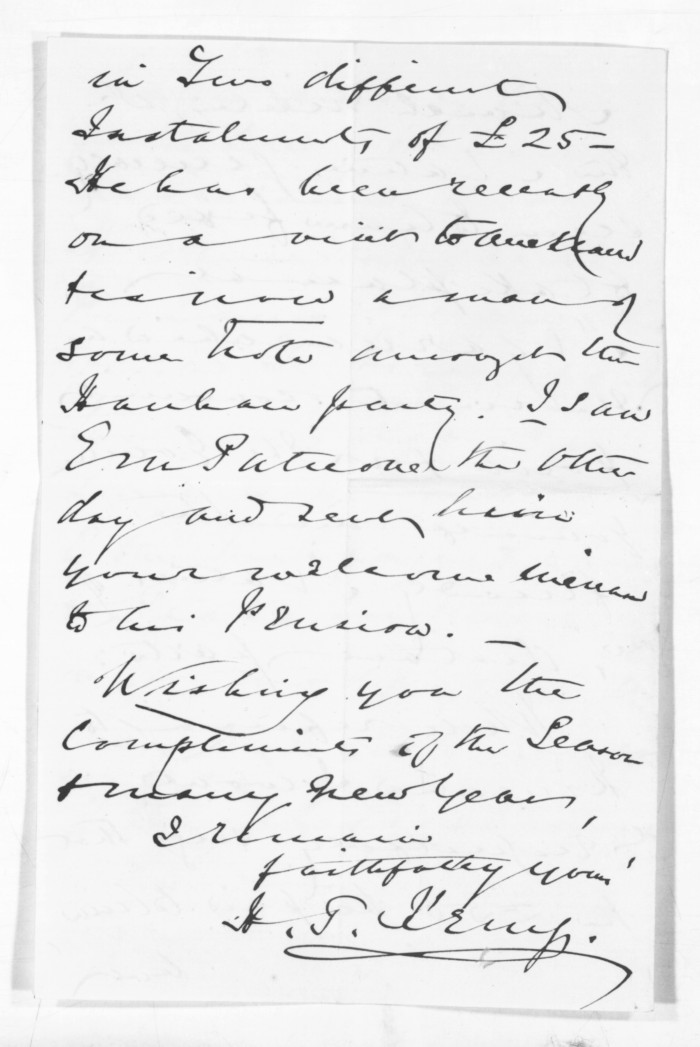 in Two different
Instalments of £25 –
He has been recently
on a visit to Auckland
& is now a man of
some note amongst the
Hauhau party. I saw
Eru Patuone the other
day and sent him
your welcome
to his Pension. —
Wishing you the
Compliments of the Season
& many New Years,
I remain
faithfully yours
H. T. Kemp.